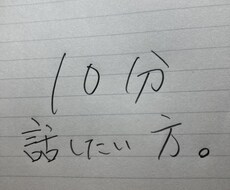 10分
話したい方。